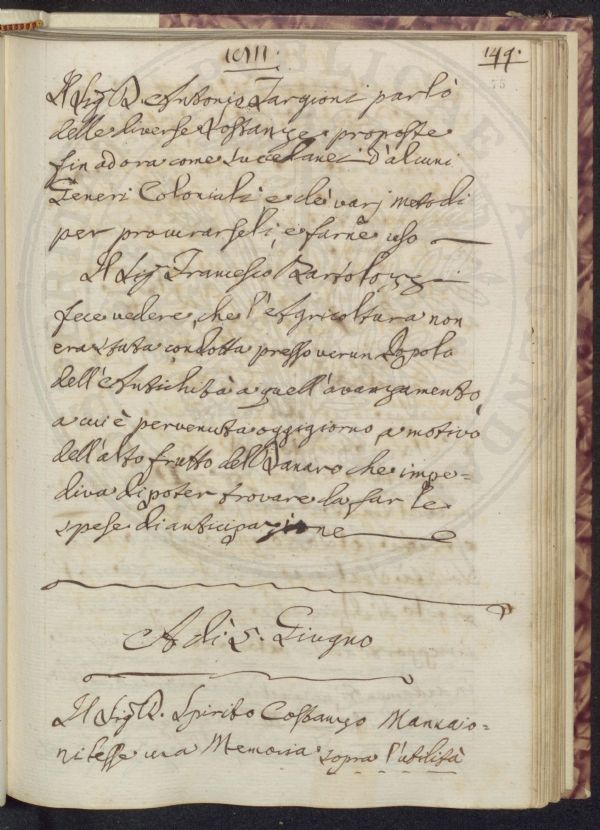 149.
75
Il Sig. D. Antonio Targioni parlò
delle diverse Sostanze proposte
fin ad ora come succedanei d'alcuni
Generi Coloniali e de varj metodi
per procurarseli, e farne uso
Il Sig. Francesco Bartolozzi
fece vedere, che l'Agricoltura non
era stata condotta presso verun Popolo
dell'Antichità a quell'avanzamento,
a cui è pervenuta oggigiorno, a motivo
dell'alto frutto dell Danaro che impe=
diva di poter trovare da far le
spese di anticipazione
A dì 5. Giugno
Il Sig. D. Spirito Costanzo Mannaio=
ni lesse una Memoria sopra l'utilità